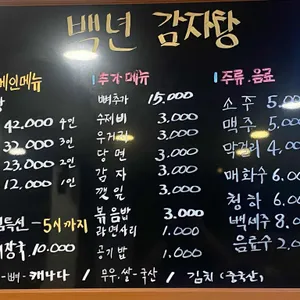 백년 감자탕
메인메뉴
탕
42.000 4인
32.000 3인
23.000 2인
12.000 1인
특선 - 5시까지
장국 10.000
추가 메뉴
뼈추가 15.000
수제비 3.000
우거리 3.000
당면 3.000
감자 3.000
깻잎 3.000
볶음밥 3.000
라면사리 1.000
공기밥 1.000
주류. 음료
소주 5.00
맥주 5.00
막걸리 4.00
매화수 6.00
청하 6.00
백세주 8.00
음료수 2.00
-뼈- 캐나다 / 무우. 쌀-국산 / 김치 (중국산)